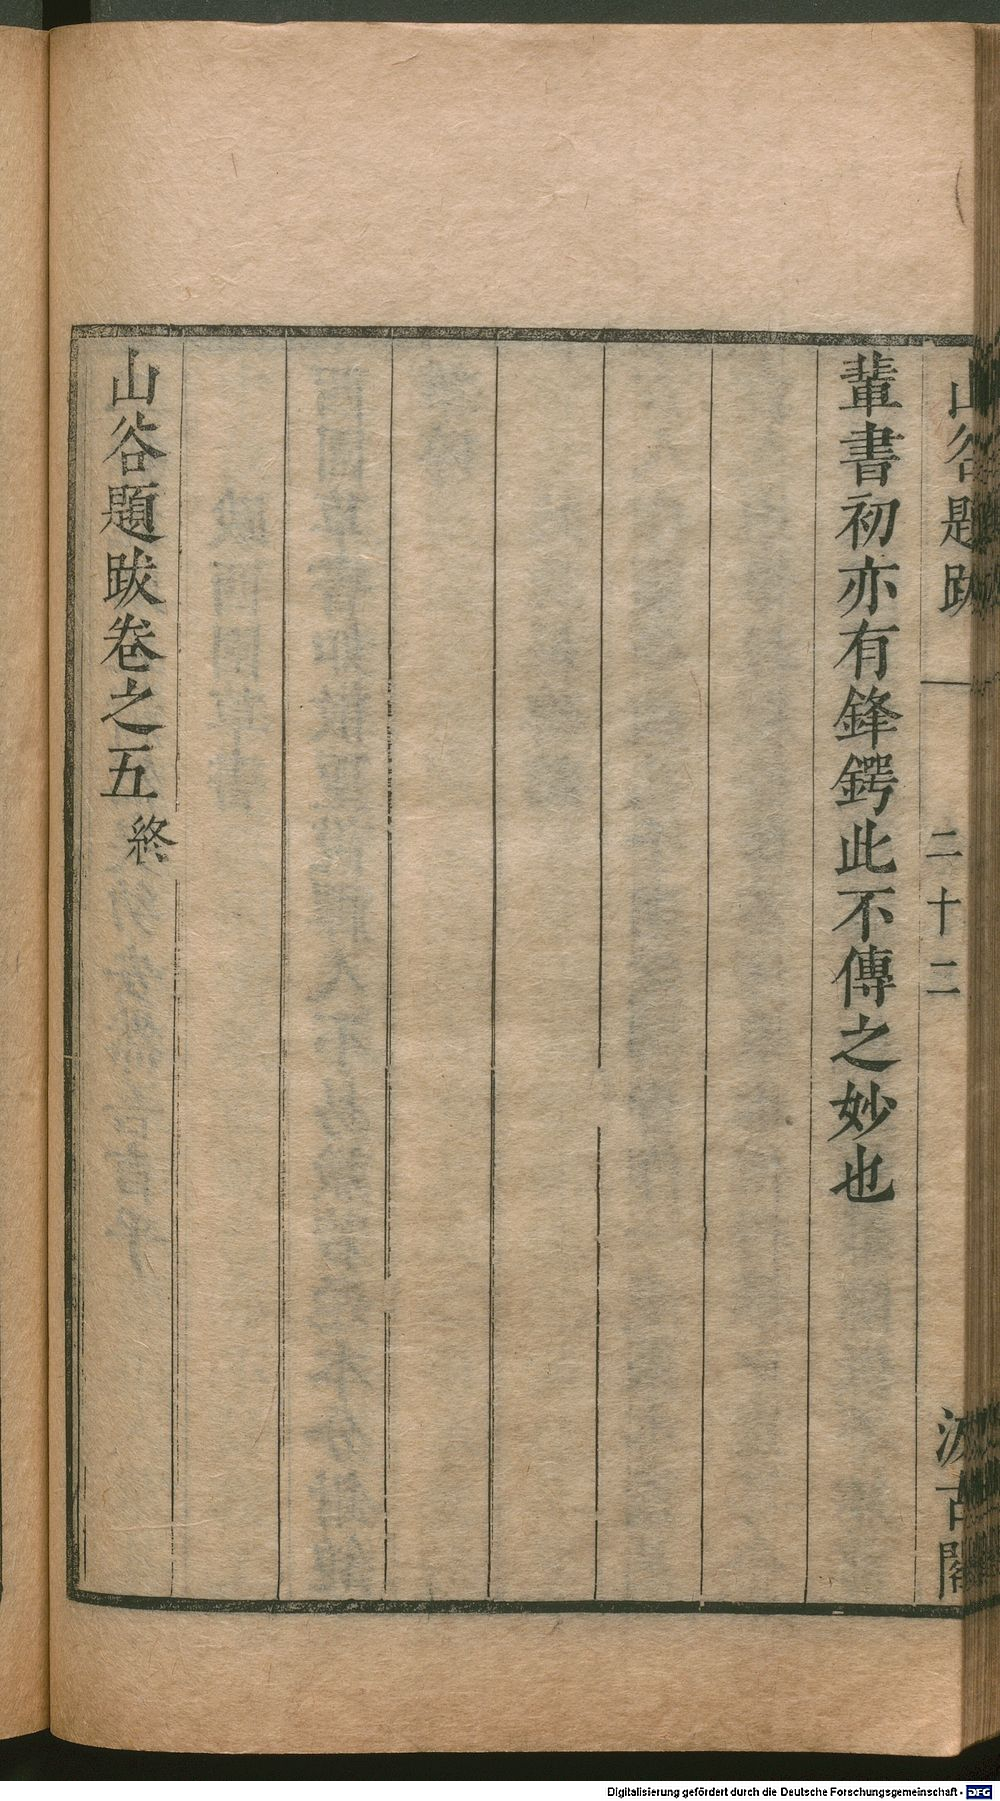 山谷題跋 二十二 汲古閣
輩書初亦有鋒鍔此不傳之妙也
山谷題跋卷之五 終
Digitalisierung gefördert durch die Deutsche Forschungsgemeinschaft - DFG